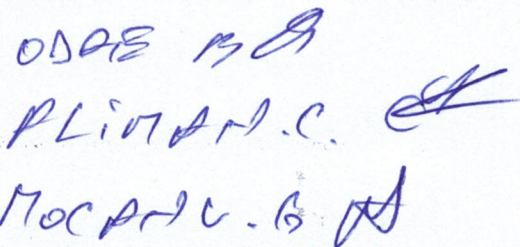 ODAE B
ALIMAN.C.
MOCANU.B